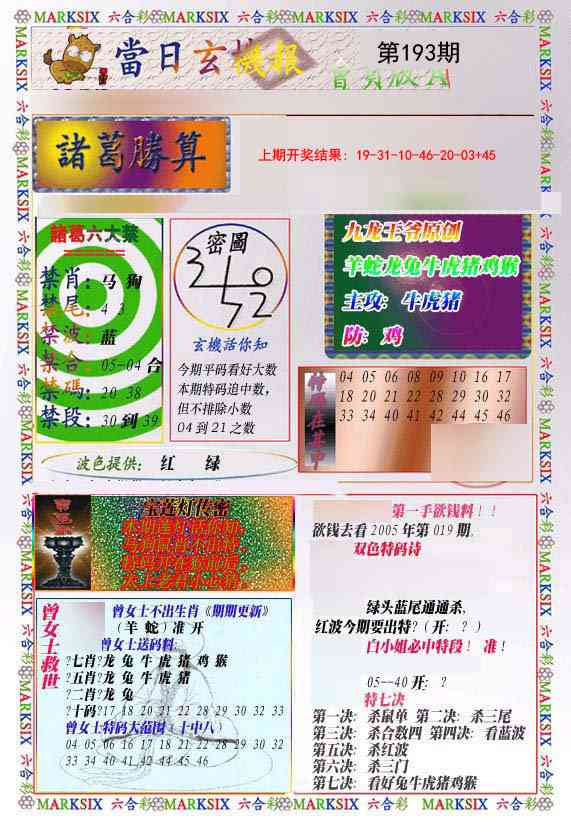 MARKSIX 六合彩 MARKSIX 六合彩 MARKSIX 六合彩 MARKSIX 六合彩
當日玄機报
第193期
諸葛勝算
上期开奖结果：19-31-10-46-20-03+45
諸葛六大禁
禁肖：马 狗
禁尾：4 3
禁波：蓝
禁合：05-04 合
禁碼：20 38
禁段：30 到 39
密圖
玄機活你知
今期平码看好大数
本期特码追中数，
但不排除小数
04 到 21 之数
九龙王爷原创
羊蛇龙兔牛虎猪鸡猴
主攻： 牛虎猪
防： 鸡
特碼在其中
04 05 06 08 09 10 16 17
18 20 21 22 28 29 30 32
33 34 40 41 42 44 45 46
波色提供： 红 绿
宝连灯传密
第一手欲钱料！！
欲钱去看 2005 年第 019 期。
双色特码诗
绿头蓝尾通通杀，
红波今期要出特?（开：？）
白小姐必中特段！ 准！
05--40 开： ?
特七决
第一决： 杀鼠单 第二决： 杀三尾
第三决： 杀合数四 第四决： 看蓝波
第五决： 杀红波
第六决： 杀三门
第七决： 看好兔牛虎猪鸡猴
曾女士救世
曾女士不出生肖《期期更新》
（羊 蛇）准 开
曾女士送码料：
?七肖?龙 兔 牛 虎 猪 鸡 猴
?五肖?龙 兔 牛 虎 猪
?二肖?龙 兔
?十码?17 18 20 21 22 28 29 30 32 33
曾女士特码大范围（十中八）
04 05 06 16 17 18 21 22 28 29 30 32
33 34 40 41 42 44 45 46
MARKSIX 六合彩 MARKSIX 六合彩 MARKSIX 六合彩 MARKSIX 六合彩